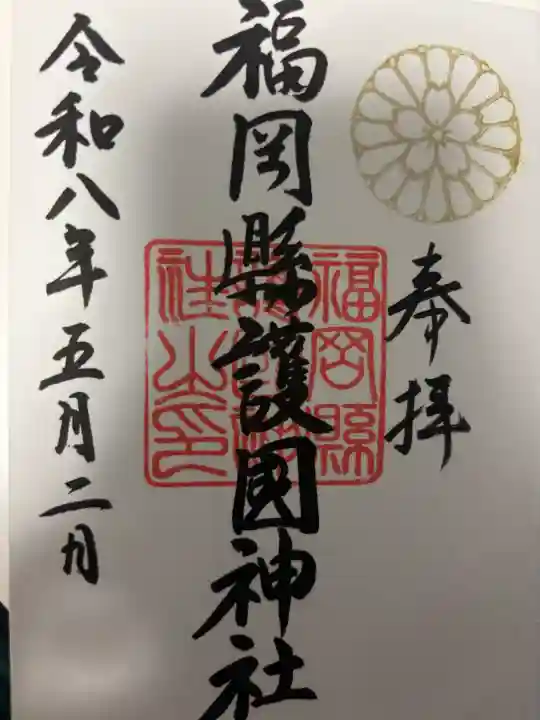 奉拝
福岡縣護國神社
福岡縣
社之印
令和八年五月二日